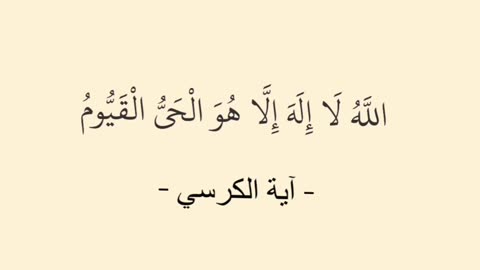 اللَّهُ لَا إِلَهَ إِلَّا هُوَ الْحَيُّ الْقَيُّومُ
- آية الكرسي -